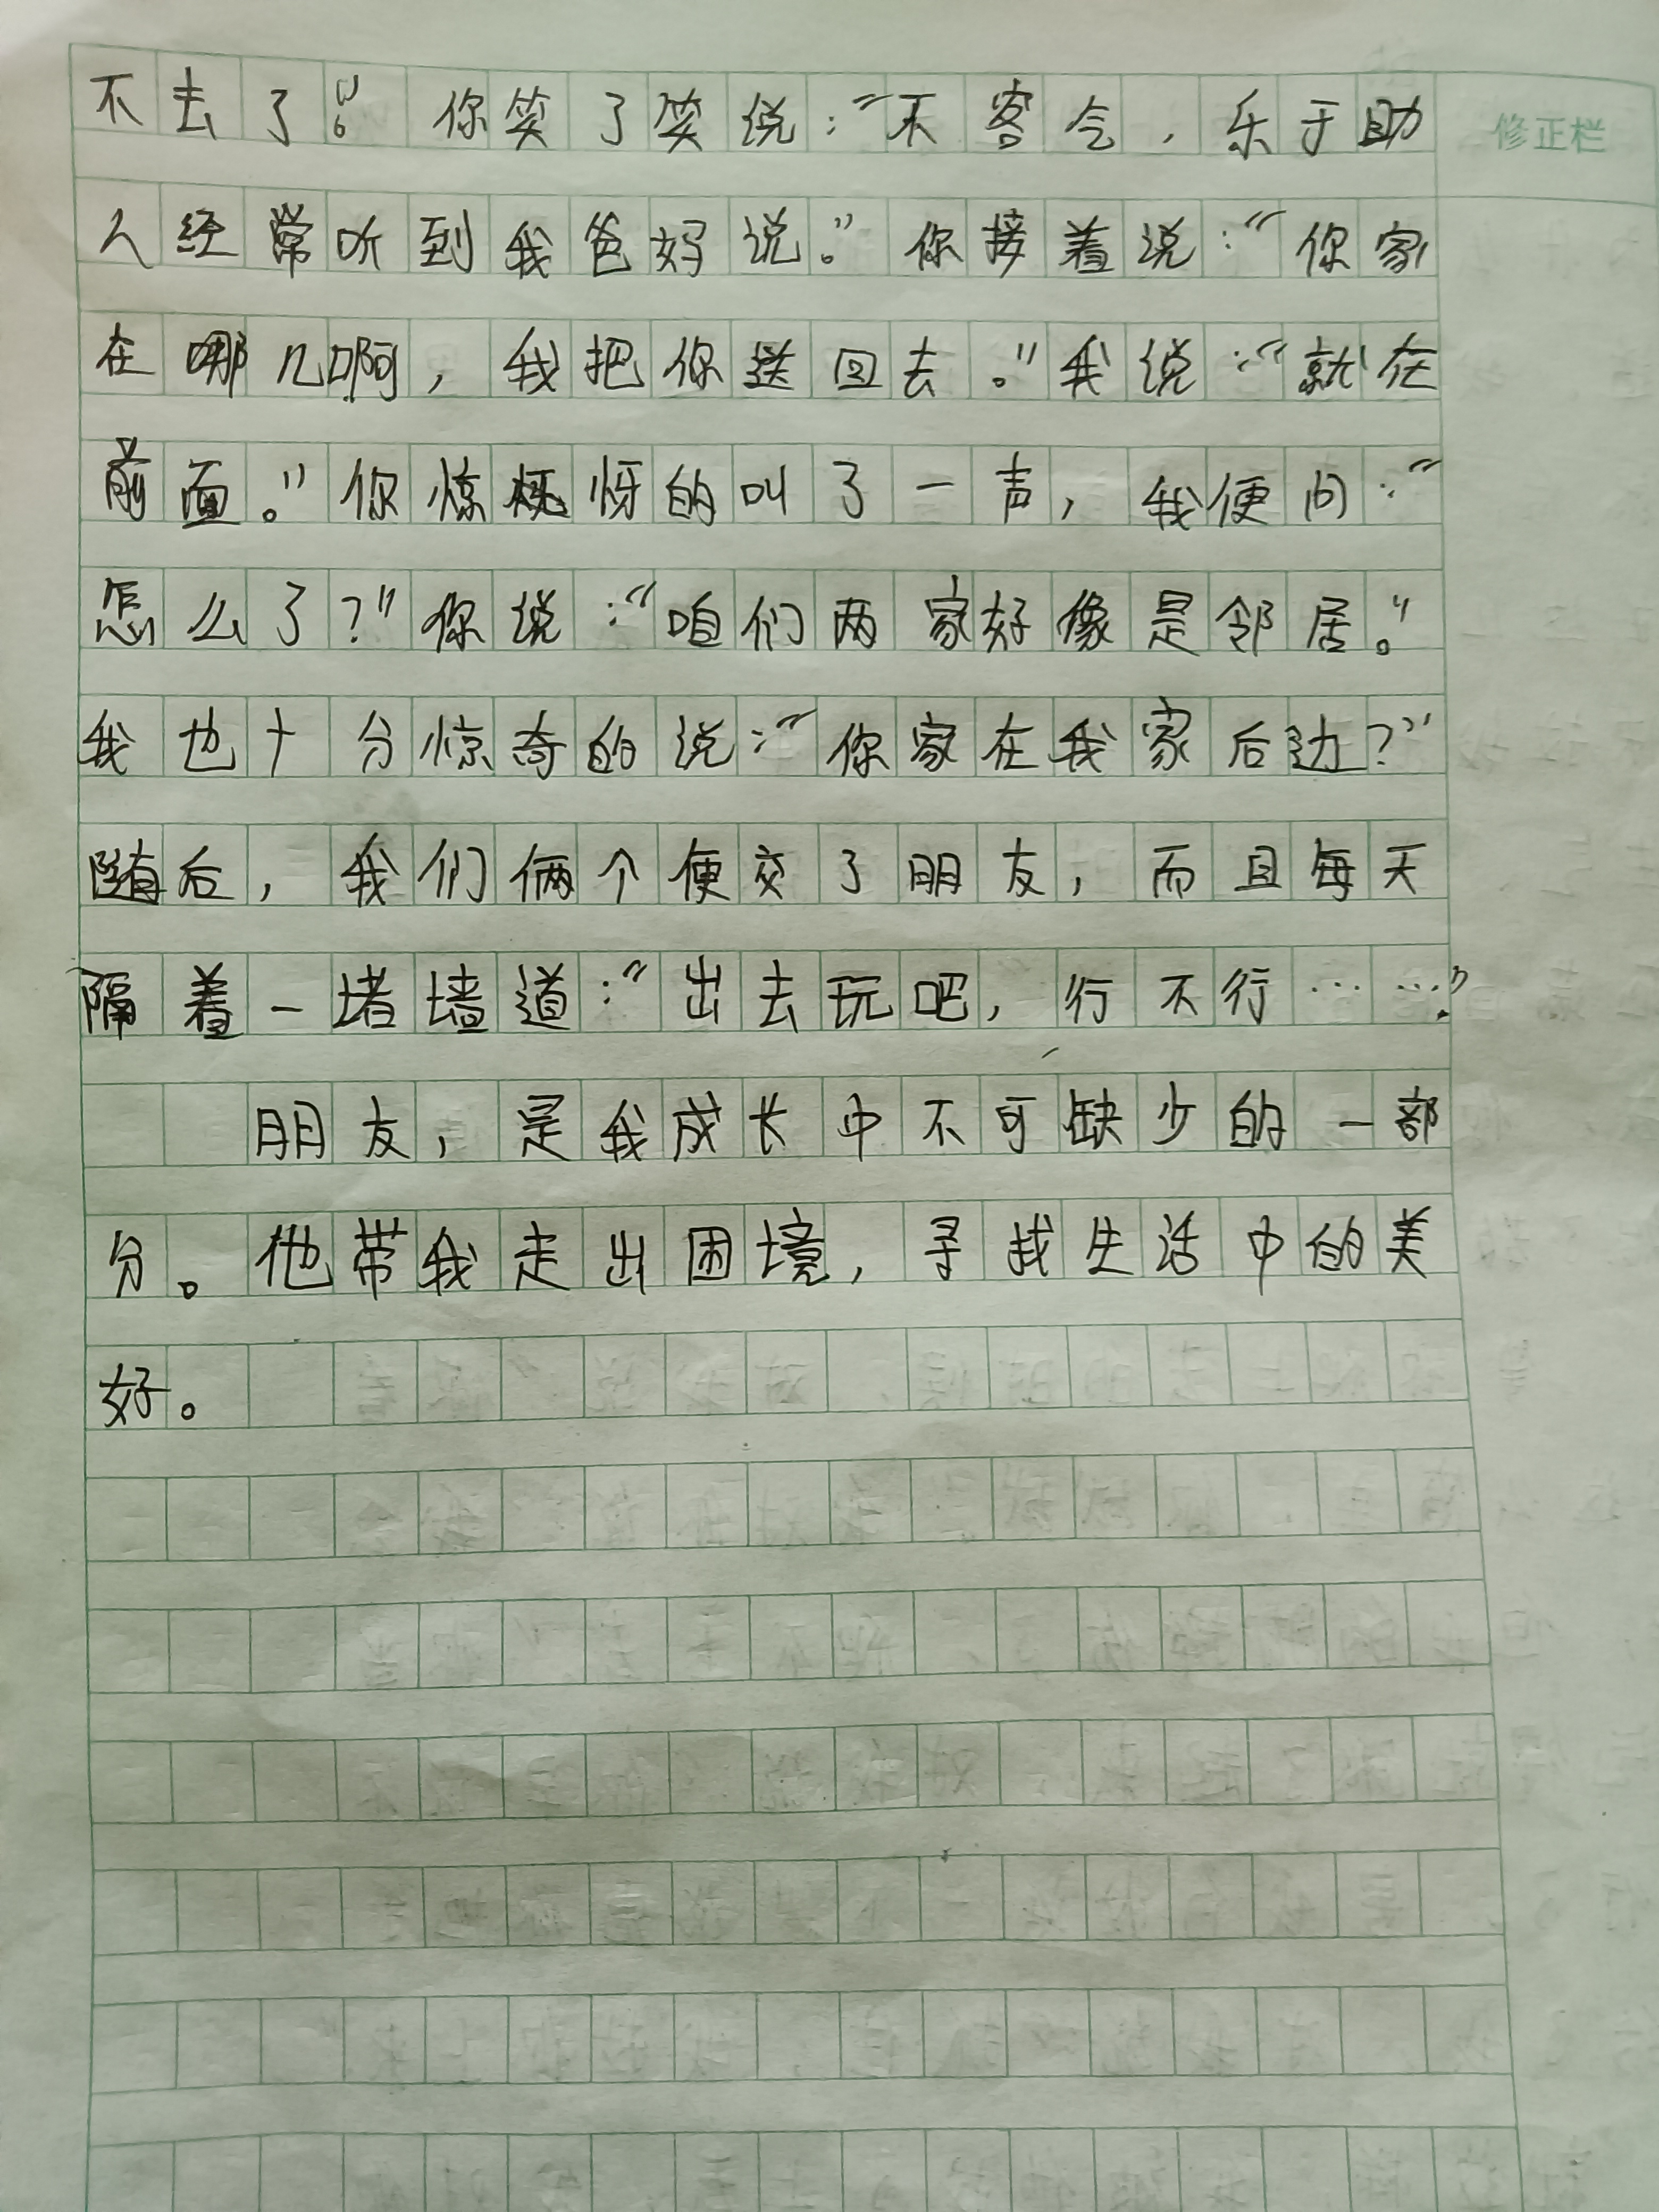 不去了。”你笑了笑说:“不客气,乐于助
修正栏
人经常听到我爸妈说。”你接着说:“你家
在哪儿啊,我把你送回去。”我说:“就在
前面。”你惊讶的叫了一声,我便问:“
怎么了?”你说:“咱们两家好像是邻居。”
我也十分惊奇的说:“你家在我家后边?”
随后,我们俩个便交了朋友,而且每天
隔着一堵墙道:“出去玩吧,行不行……”
朋友,是我成长中不可缺少的一部
分。他带我走出困境,寻找生活中的美
好。